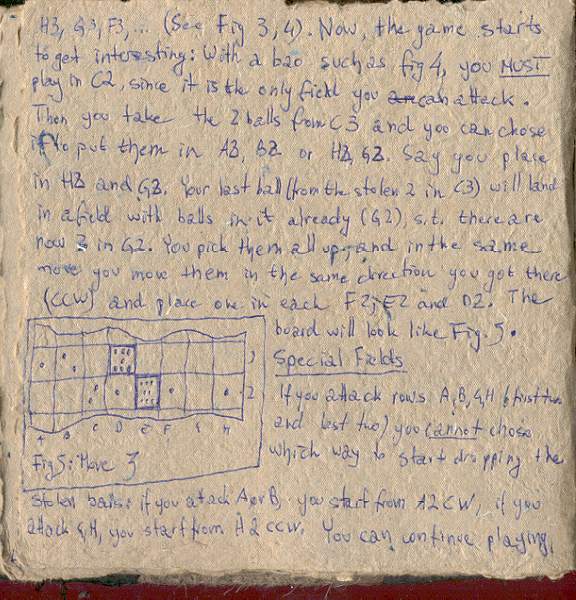 H3, G3, F3, ... (See Fig 3, 4). Now, the game starts
to get interesting: With a bao such as fig 4, you MUST
play in C2, since it is the only field you can attack.
Then you take the 2 balls from C3 and you can chose
to put them in A2, B2 or H2, G2. Say you place
in H2 and G2. Your last ball (from the stolen 2 in C3) will land
in a field with balls in it already (G2), s.t. there are
now 3 in G2. You pick them all up, and in the same
move you move them in the same direction you got there
(CCW) and place one in each F2, E2 and D2. The
board will look like Fig. 5.
Special Fields
If you attack rows A, B, G, H (first two
and last two) you cannot chose
which way to start dropping the
stolen balls: if you atack A or B you start from A2 CW, if you
attack G, H, you start from H2 CCW. You can continue playing,
3
2
A B C D E F H
Fig 5: Move 3